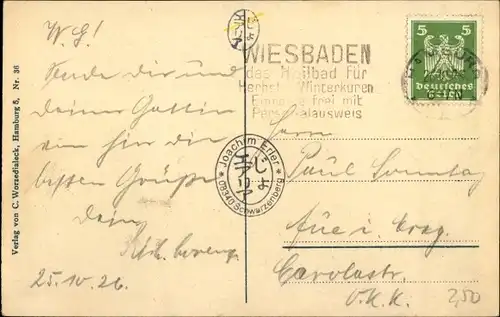 W. G!
Sende Dir und
deiner Gattin
die
besten Grüße
Dein
25.10.26.
Verlag von C. Worzedialeck, Hamburg 5, Nr. 36
WIESBADEN
das Heilbad für
Herbst- Winterkuren
Einreise frei mit
Personalausweis
5 5
Deutsches
Reich
* Joachim Erler *
じょ
エアリア
08340 Schwarzenberg
Herrn
Paul Sonntag
Aue i. Erzg.
Carolastr.
V.K.K.
2,50